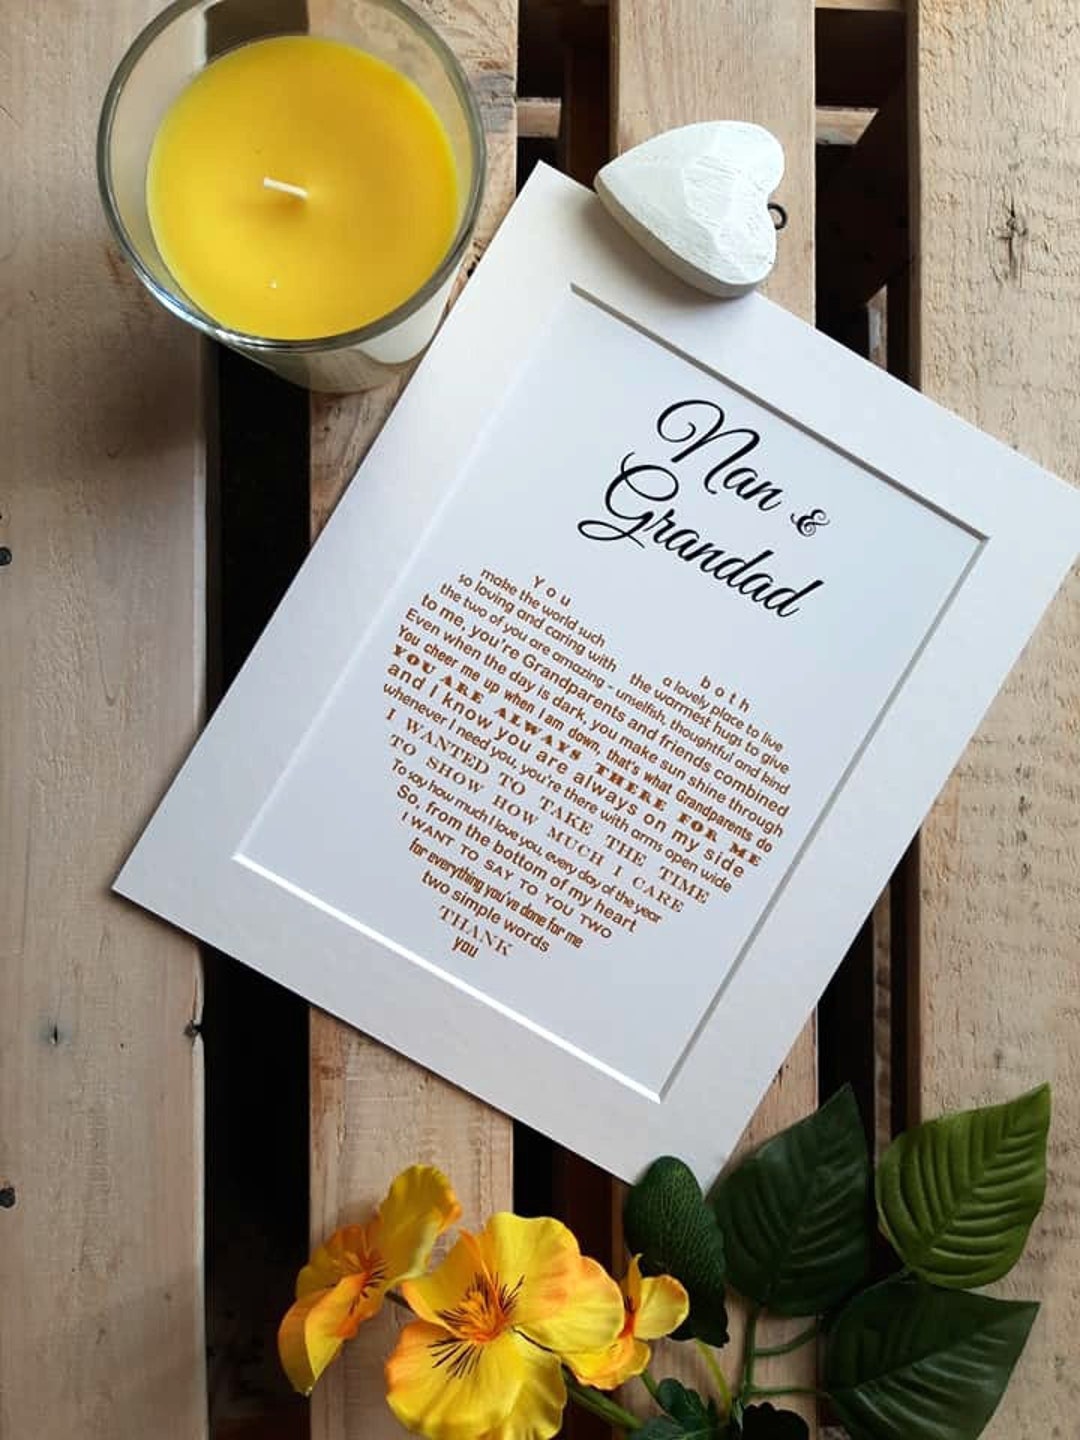 Nan &
Grandad
You both
make the world such a lovely place to live
so loving and caring with the warmest hugs to give
the two of you are amazing - unselfish, thoughtful and kind
to me, you're Grandparents and friends combined
Even when the day is dark, you make sun shine through
You cheer me up when I am down, that's what Grandparents do
YOU ARE ALWAYS THERE FOR ME
and I know you are always on my side
whenever I need you, you're there with arms open wide
I WANTED TO TAKE THE TIME
TO SHOW HOW MUCH I CARE
To say how much I love you, every day of the year
So, from the bottom of my heart
I WANT TO SAY TO YOU TWO
for everything you've done for me
two simple words
THANK
you